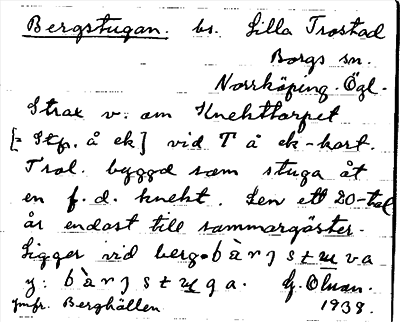 Bergstugan. bs. Lilla Trostad
Borgs sn.
Norrköping. Ögl.
Strax v. om Knekttorpet
[= Stp. å ek] vid T å ek-kart.
Trol. byggd som stuga åt
en f.d. knekt. Sen ett 20-tal
år endast till sommargäster.
Ligger vid berg.
y:
G. Olsson.
jmfr. Berghällen 1938.